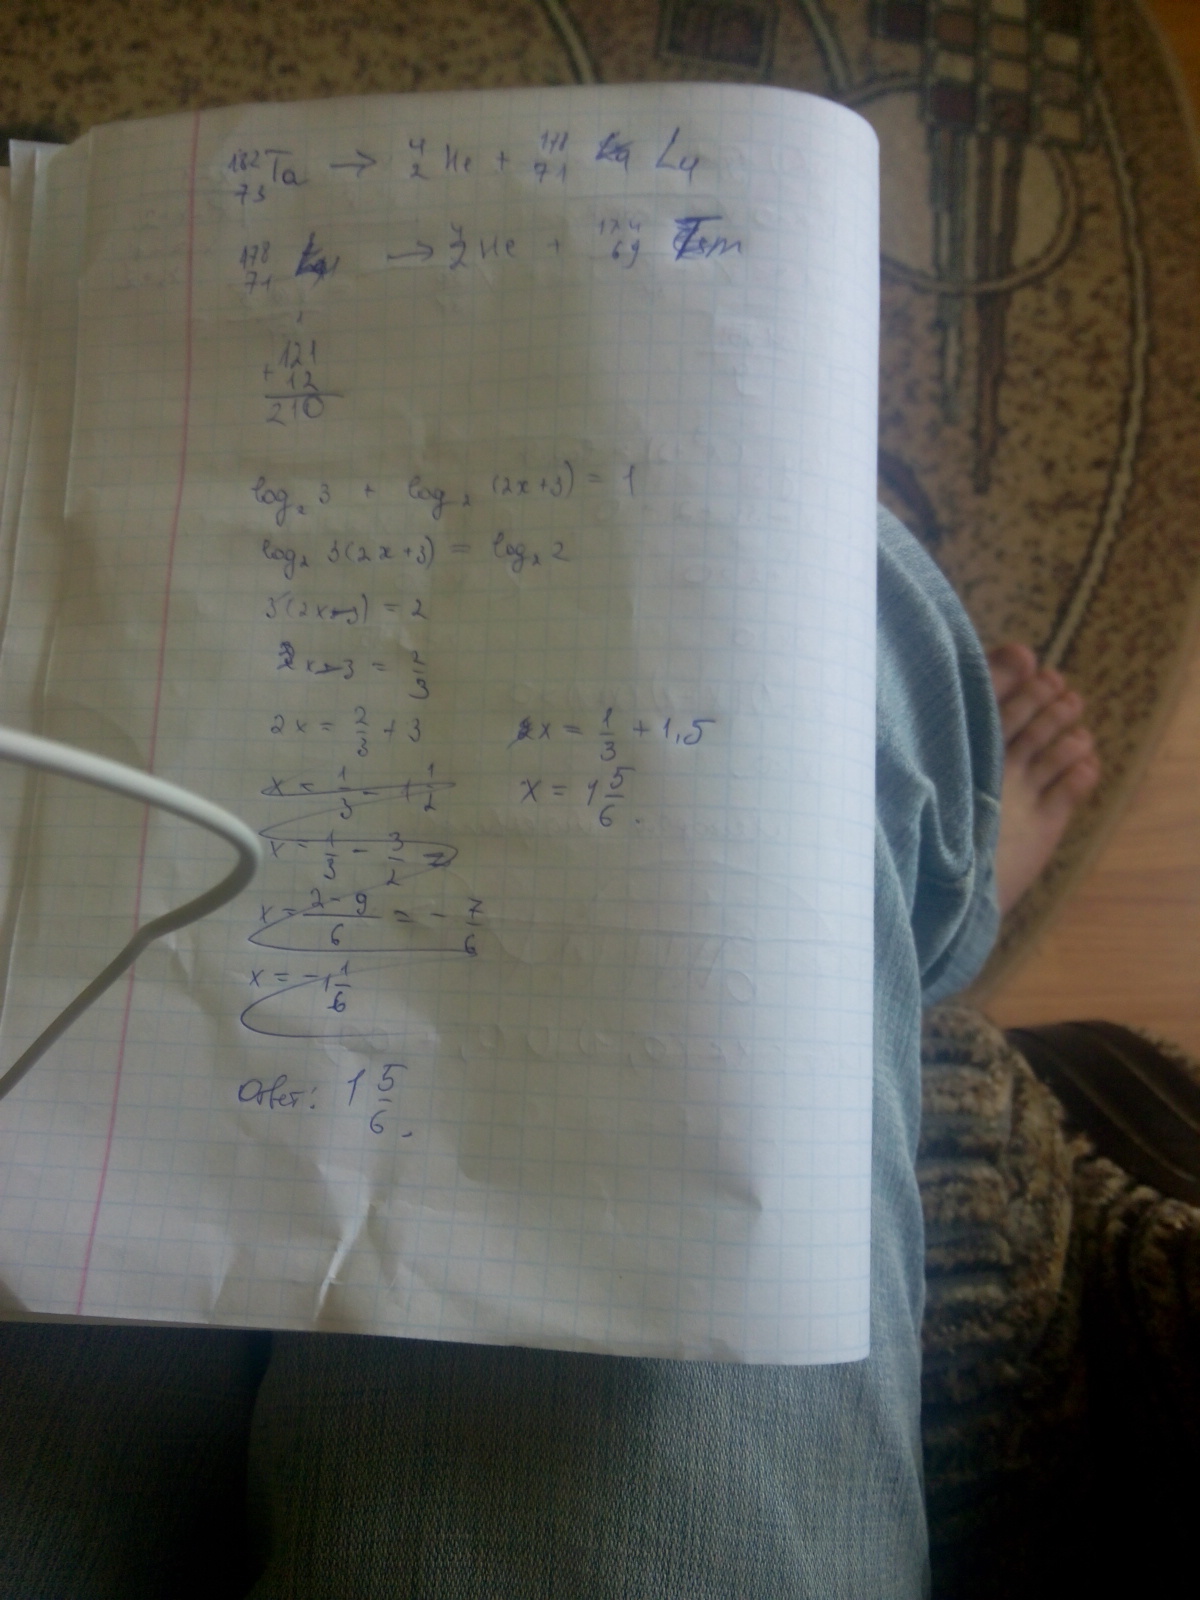 ¹⁸²₇₃Ta → ⁴₂He + ¹⁷⁸₇₁ Lu
¹⁷⁸₇₁ Lu → ⁴₂He + ¹⁷⁴₆₉
+ 121
12
210
log₂ 3 + log₂ (2x+3) = 1
log₂ 3(2x+3) = log₂ 2
3(2x-3) = 2
2x-3 = 2/3
2x = 2/3 + 3
x = 1/3 - 1 1/2
x = 1/3 - 3/2 =
x = (2-9)/6 = - 7/6
x = -1 1/6
x = 1/3 + 1,5
x = 1 5/6.
Ответ: 1 5/6.